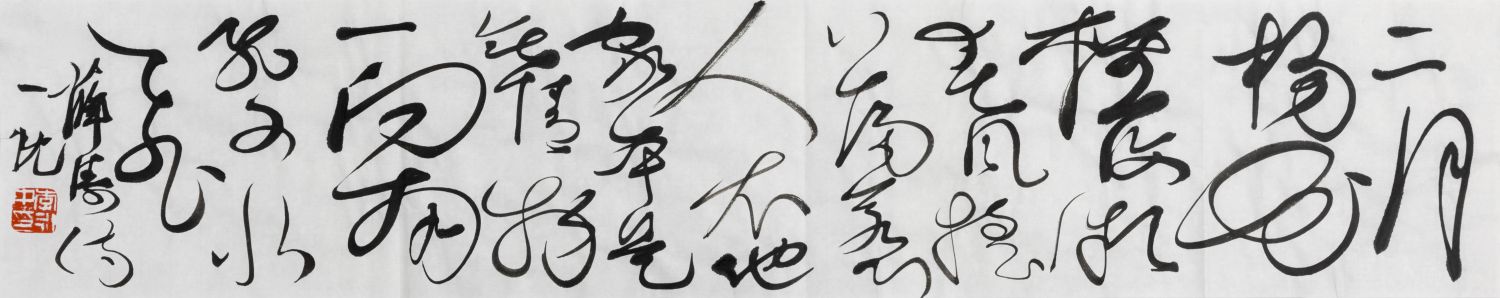 二月
杨花
轻复微
春风摇
荡惹
人衣他
家本是
无情物
一向南
飞又北
飞
薛涛诗